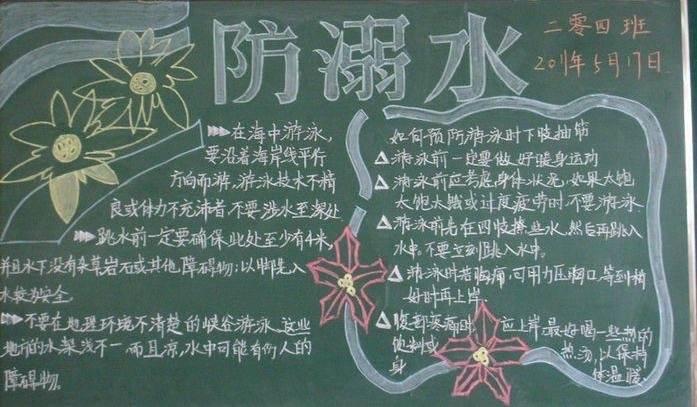 防溺水
二零四班
2011年5月17日
在海中游泳,
要沿着海岸线平行
方向而游,游泳技术不精
良或体力不充沛者,不要涉水至深处
跳水前一定要确保此处至少有4米,
并且水下没有杂草岩石或其他障碍物;以脚先入
水较为安全。
不要在地理环境不清楚的峡谷游泳。这些
地方的水深浅不一,而且凉,水中可能有伤人的
障碍物。
如何预防游泳时下肢抽筋
游泳前一定要做好暖身运动
游泳前应考虑身体状况,如果太饱
太饱太饿或过度疲劳时,不要游泳.
游泳前先在四肢撩些水,然后再跳入
水中.不要立刻跳入水中。
游泳时若胸痛,可用力压胸口,等到稍
好时再上岸.
腹部疼痛时 应上岸,最好喝一些热的
饮料或 热汤,以保持
身 体温暖